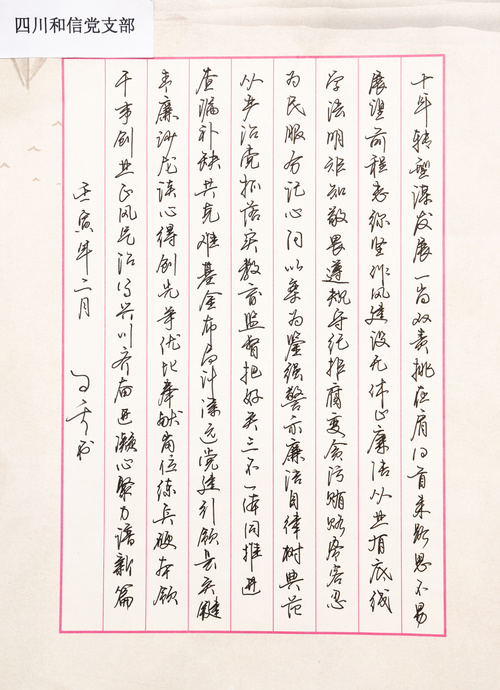 四川和信党支部
十年转型谋发展一岗双责挑在肩回首来路思不易
展望前程志弥坚作风建设无休止廉洁从业有底线
学法明矩知敬畏遵规守纪拒腐变贪污贿赂零容忍
为民服务记心间以案为鉴强警示廉洁自律树典范
从严治党抓落实教育监督把好关三不一体同推进
查漏补缺共克难基金布局计深远党建引领是关键
廉沙龙谈心得创先争优比奉献岗位练兵硬本领
干事创业正风气治蜀兴川齐奋进凝心聚力谱新篇
壬寅年二月
书